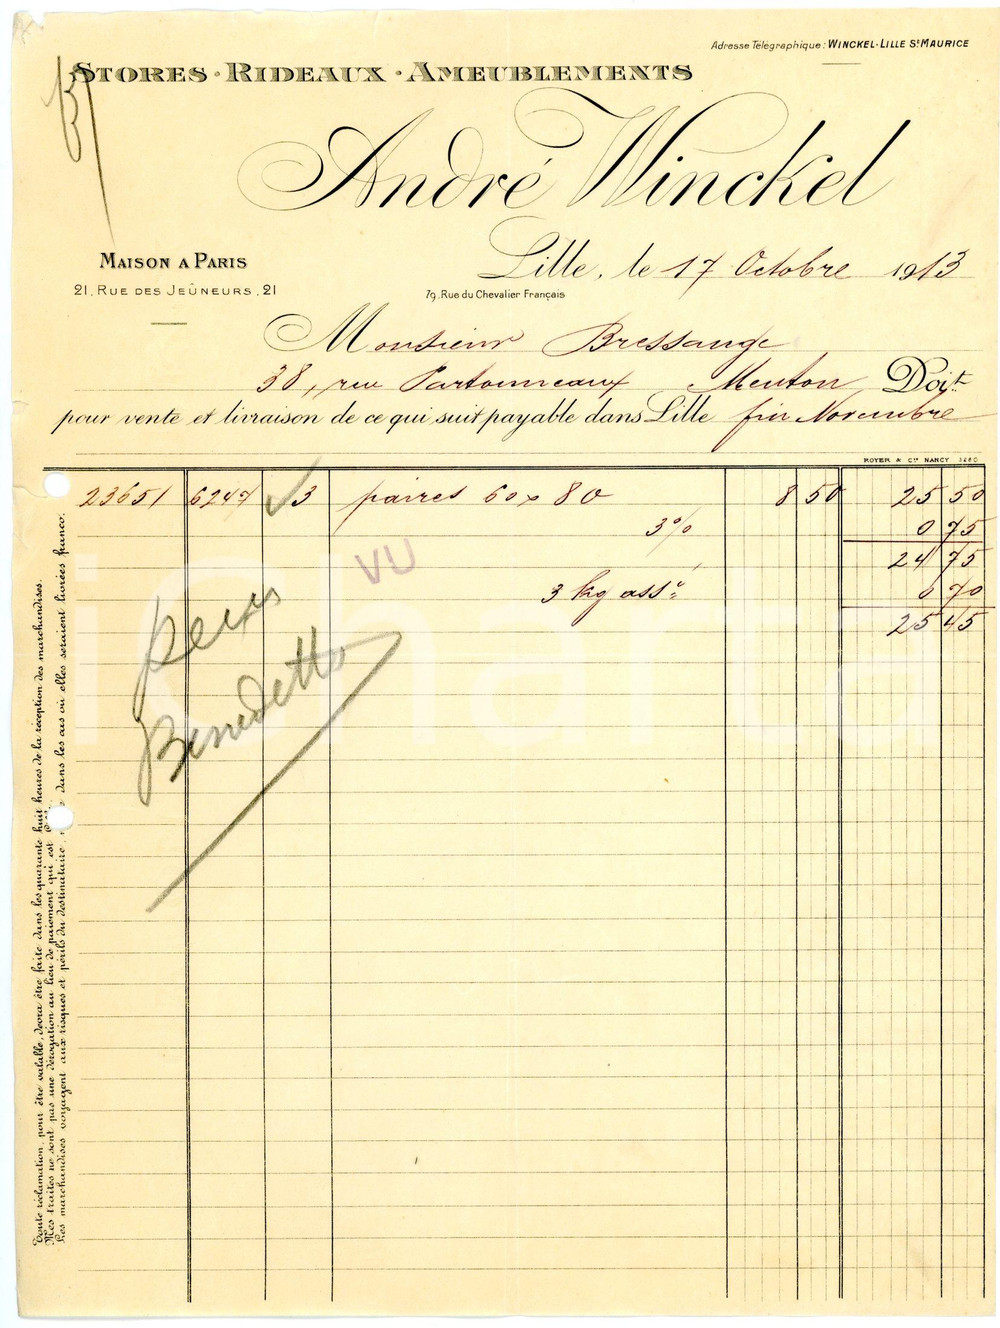 Adresse Télégraphique: WINCKEL-LILLE St MAURICE
STORES · RIDEAUX · AMEUBLEMENTS
André Winckel
Lille, le 17 Octobre 1913
MAISON A PARIS
21, RUE DES JEÛNEURS, 21
79, Rue du Chevalier Français
Monsieur Bressange
38, rue Partouneaux Menton Doit
pour vente et livraison de ce qui suit payable dans Lille fin Novembre
ROYER & Cie NANCY
23651 6247 3 paires 60 x 80 8 50 25 50
3% 0 75
24 75
VU
3 kg ass 0 70
25 45
Benedetto
iCharta
Toute réclamation, pour être valable, devra être faite dans les quarante huit heures de la réception des marchandises.
Mes traites ne sont pas une dérogation au lieu de paiement qui est
Les marchandises voyagent aux risques et périls du destinataire, dans les cas où elles seraient livrées franco.